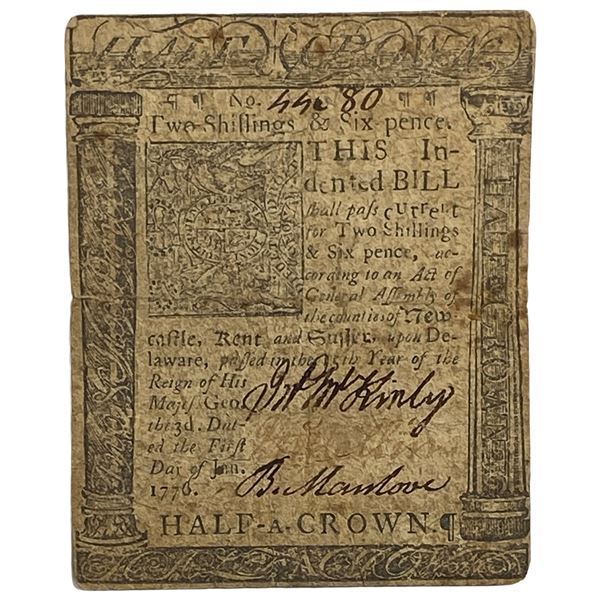 HALF CROWN
No. 44080
Two Shillings & Six pence.
THIS In-
dented BILL
shall pass current
for Two Shillings
& Six pence, ac-
cording to an Act of
General Assembly of
the counties of New-
castle, Kent and Sussex, upon De-
laware, passed in the 15th Year of the
Reign of His
Majest. Geo.
the 3d. Dat-
ed the First
Day of Jan.
1776.
Jno McKinly
B. Manlove
HALF-A-CROWN.¶
HALF-A-CROWN